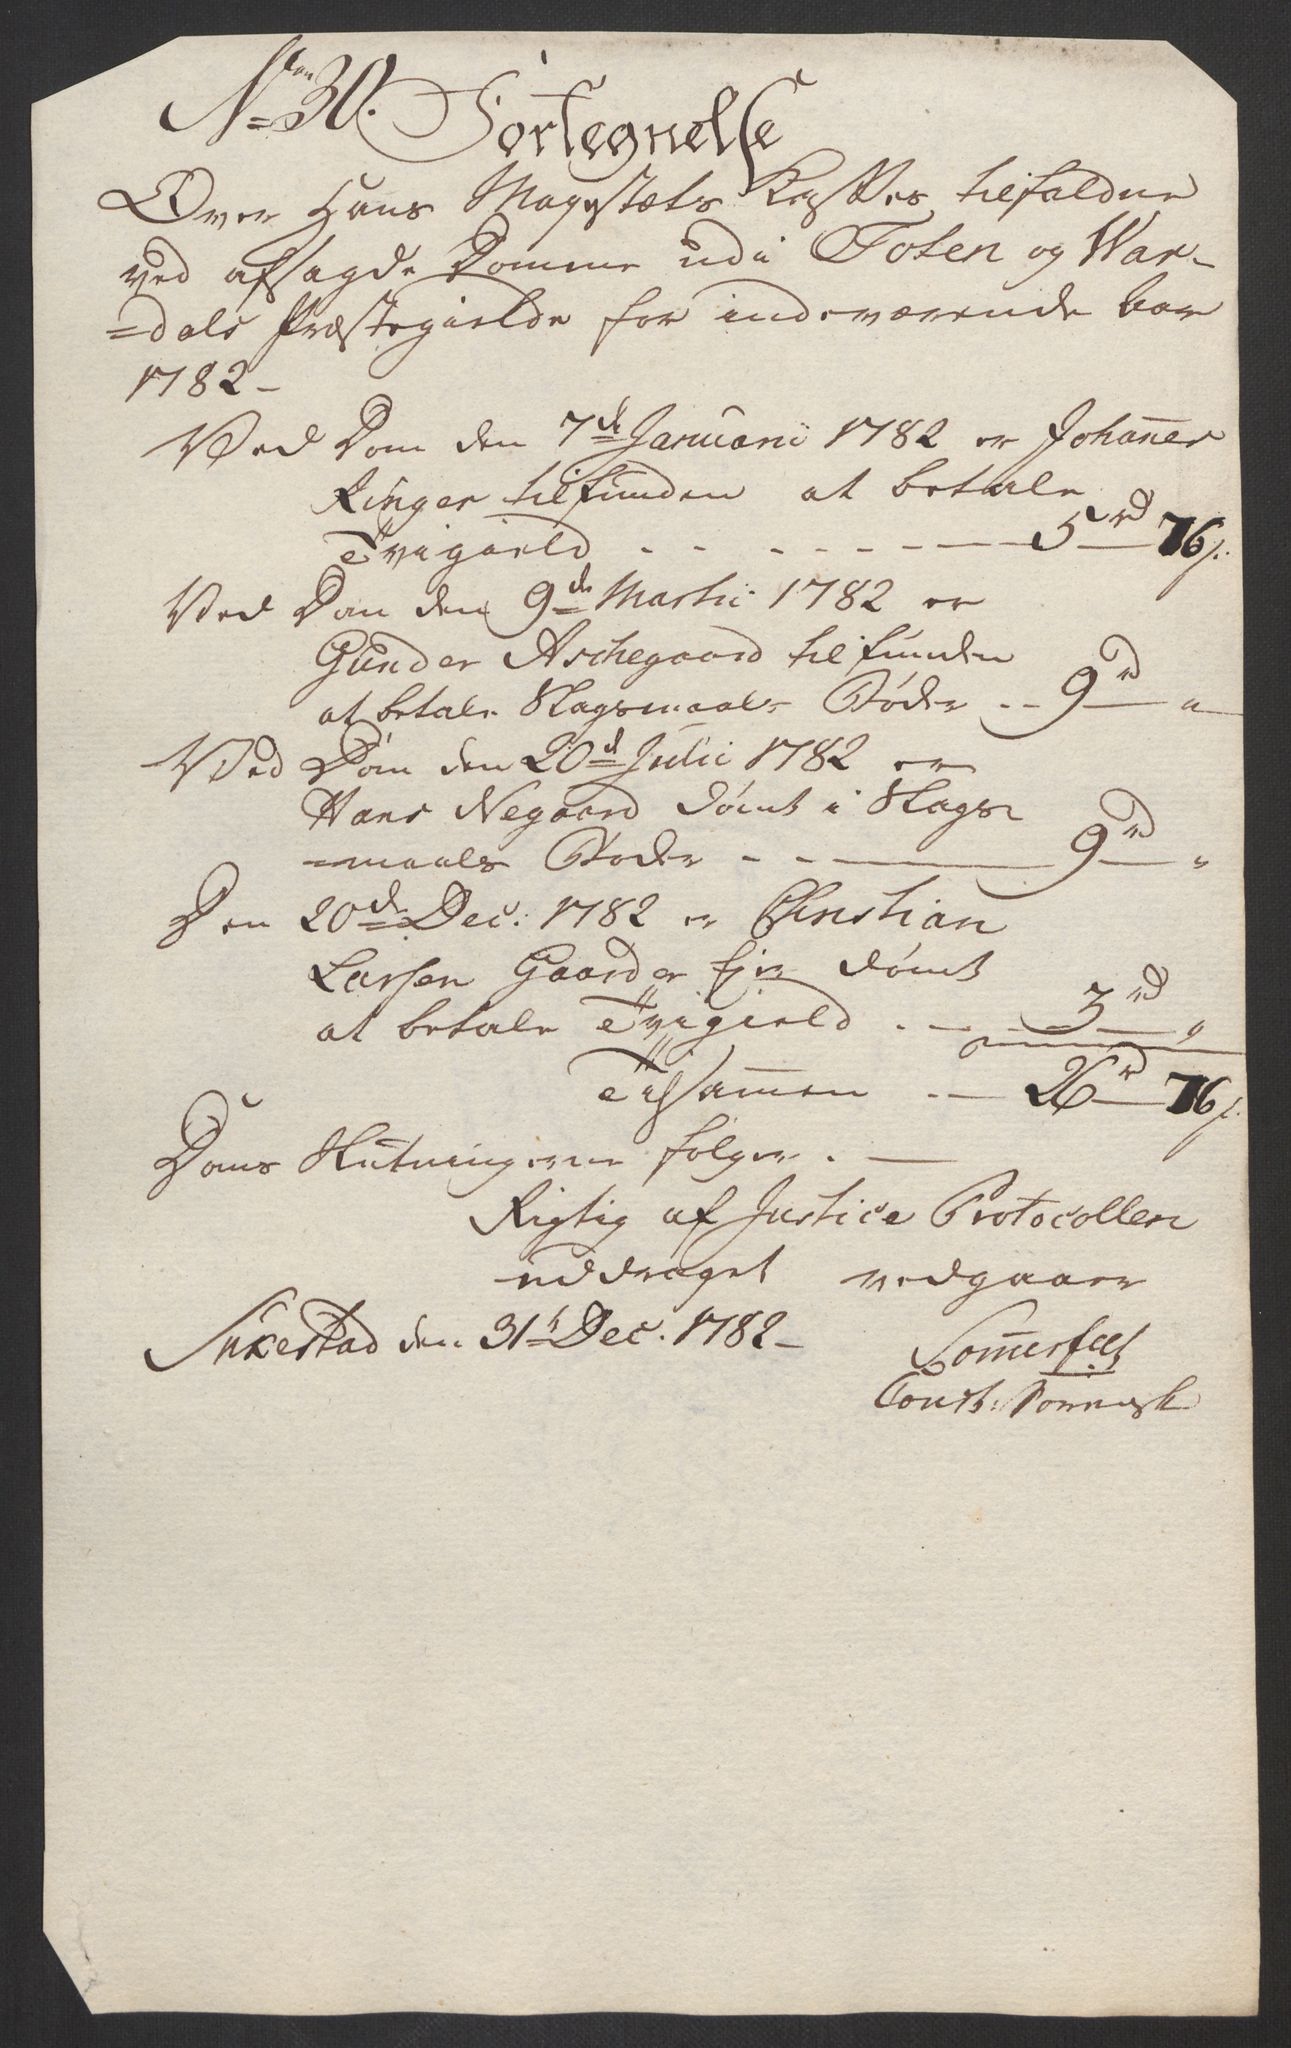 No 30. Fortegnelse
Over Hans Mayestæts Kasses tilfaldne
ved afsagde Domme udi Toten og War-
=dals Præstegielde for indeværende Aar
1782-
Ved Dom den 7de Januarii 1782 er Johannes
Ringer tilfunden at betale
Tvigield - - - - - - 5 rd 76 s.
Ved Dom den 9de Martii 1782 er
Gunder Aschegaard tilfunden
at betale Slagsmaals Bøder - - 9 rd "
Ved Dom den 20d Julii 1782 er
Hans Negaard dømt i Slags
=maals Bøder - - 9 rd "
Den 20de Dec: 1782 er Christian
Larsen Gaarder Eje dømt
at betale Tvigield - - - 3 rd "
Tilsammen - - 26 rd 76 s.
Doms Slutningerne følger. -
Rigtig af Justice Protocollen
uddraget vedgaaer
Sukestad den 31t Dec. 1782- Sommerfelt
Const: Sorensk